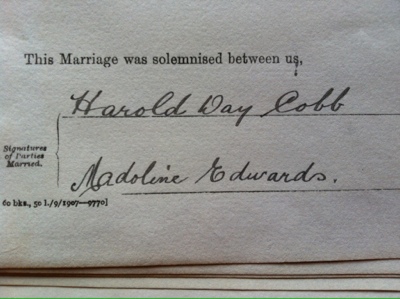 This Marriage was solemnised between us,
Harold Day Cobb
Signatures
of Parties
Married.
Madoline Edwards.
60 bks., 50 l./9/1907—9770]